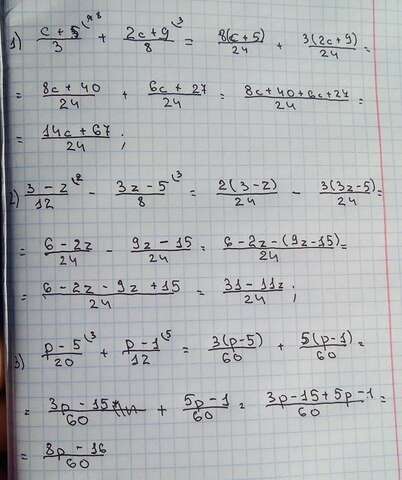 1) (c + 5)/3 \8 + (2c + 9)/8 \3 = 8(c + 5)/24 + 3(2c + 9)/24 =
= (8c + 40)/24 + (6c + 27)/24 = (8c + 40 + 6c + 27)/24 =
= (14c + 67)/24 ;
2) (3 - z)/12 \2 - (3z - 5)/8 \3 = 2(3 - z)/24 - 3(3z - 5)/24 =
= (6 - 2z)/24 - (9z - 15)/24 = (6 - 2z - (9z - 15))/24 =
= (6 - 2z - 9z + 15)/24 = (31 - 11z)/24 ;
3) (p - 5)/20 \3 + (p - 1)/12 \5 = 3(p - 5)/60 + 5(p - 1)/60 =
= (3p - 15)/60 + (5p - 1)/60 = (3p - 15 + 5p - 1)/60 =
= (8p - 16)/60